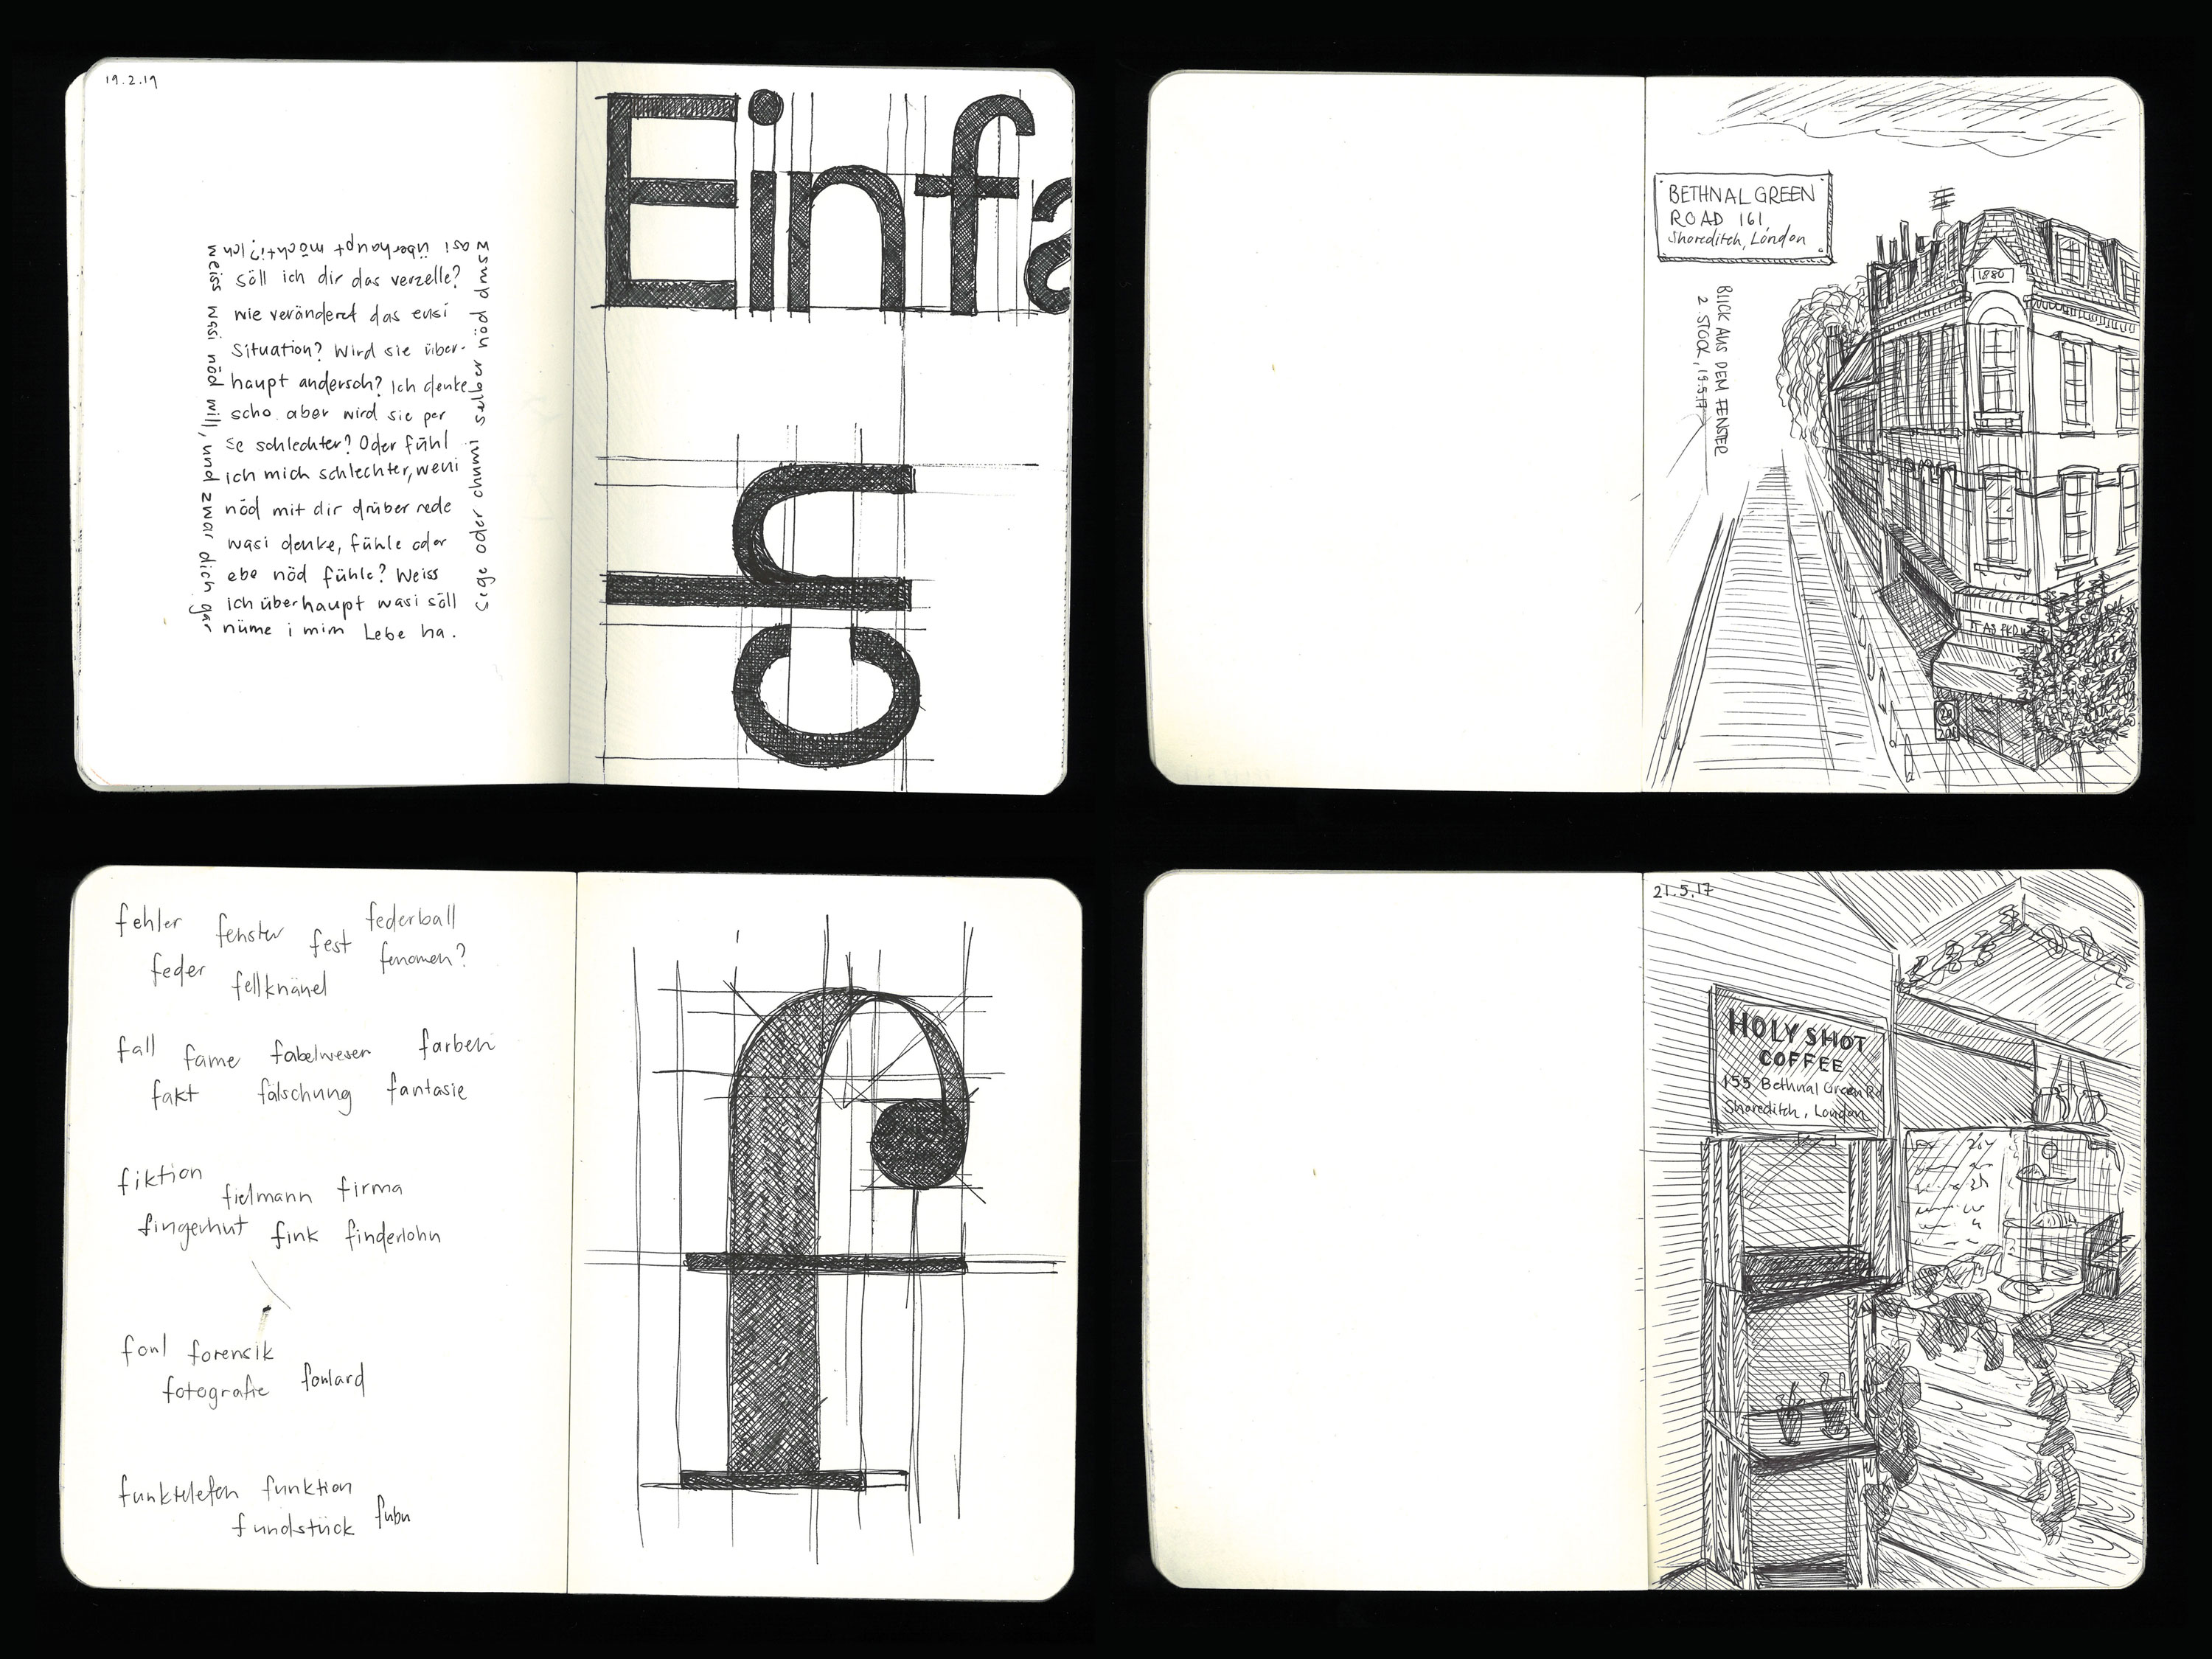 19.2.19
söll ich dir das verzelle?
wie verändert das eusi
Situation? Wird sie über-
haupt andersch? Ich denke
scho. aber wird sie per
se schlechter? Oder fühl
ich mich schlechter, weni
nöd mit dir drüber rede
wasi denke, fühle oder
ebe nöd fühle? Weiss
ich überhaupt wasi söll
säge oder chumi selber nöd drus
wasi überhaupt möchti? Ich
weiss wasi nöd will, und zwar dich gar
nüme i mim Lebe ha.
Einfa
ch
BETHNAL GREEN
ROAD 161
Shoreditch, London
BLICK AUS DEM FENSTER
2. STOCK, 19.5.17
1880
fehler fenster fest federball
feder fellknäuel fenomen?
fall fame fabelwesen farben
fakt fälschung fantasie
fiktion fielmann firma
fingerhut fink finderlohn
forensik
fotografie foulard
funktelefon funktion
fundstück fubu
f
21.5.17
HOLY SHOT
COFFEE
155 Bethnal Green Rd
Shoreditch, London